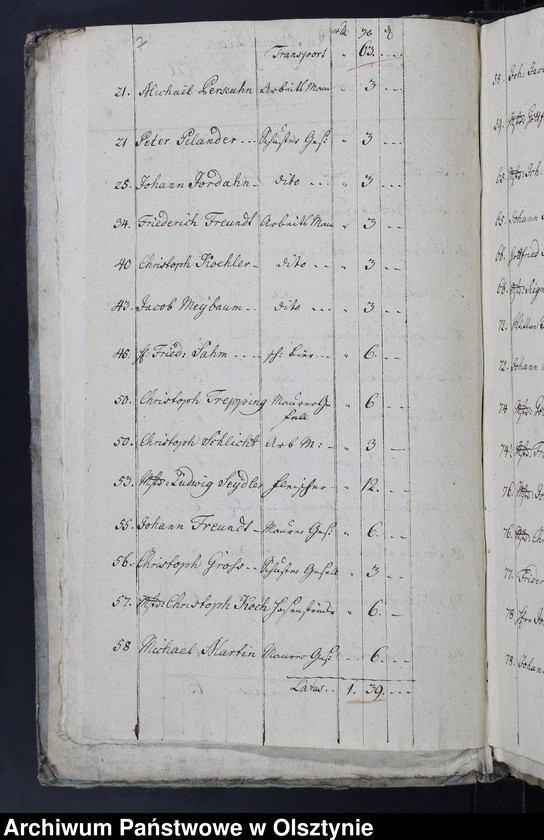 7
rthl. gr. ₰
Transport " 63. - - -
21. Michael Persuhn Arbeits Mann " 3 - - -
21 Peter Pilander - - - Schuster Ges: " 3 - - -
25. Johann Jordahn - dito - - - " 3 - - -
34. Friederich Freundt Arbeits Mann " 3 - - -
40 Christoph Koehler - dito - - - " 3 - - -
43. Jacob Meybaum - - dito - - - " 3 - - -
46. Fried: Sahm - - - - sch: bier - - - " 6. - -
50. Christoph Trepping Maurer Ge
sell " 6 - -
50. Christoph Schlicht Arb M: - " 3 -
53. Mstr: Ludwig Seydler fleischer - " 12. - -
55. Johann Freundt - Maurer Ges: " 6. - -
56. Christoph Gross - - Schuster Gesell " 3 - -
57. Mstr: Christoph Koch " 6. -
58 Michael Martin Maurer Ges: - - 6. - -
Latus - - 1. 39. - - -
58. Joh: Jac
59. Mstr: Gottf
63. Mstr: Joh.
65. Johann
66. Gottfried
68. Mstr:
72.
72. Johann
74 Mstr:
74. Mstr: Fr
76. Mstr: Jo
76. Mstr: Ch
77. Frider
78. Jo
78. Johan
Archiwum Państwowe w Olsztynie